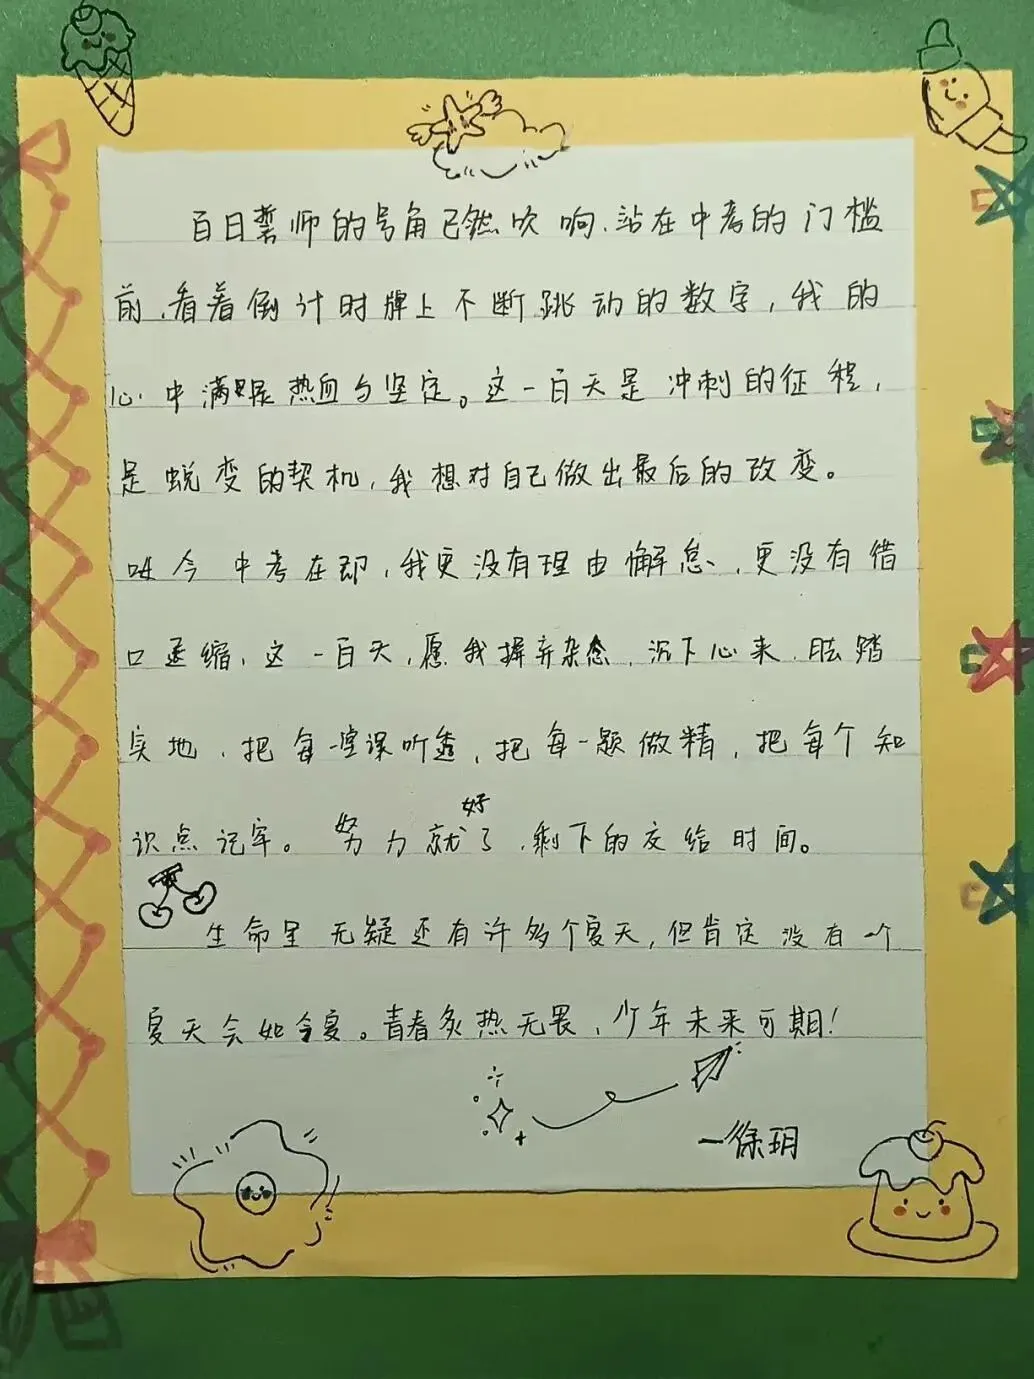 百日誓师的号角已然吹响,站在中考的门槛
前,看着倒计时牌上不断跳动的数字,我的
心中满是热血与坚定。这一百天是冲刺的征程,
是蜕变的契机,我想对自己做出最后的改变。
如今中考在即,我更没有理由懈怠,更没有借
口退缩,这一百天,愿我摒弃杂念,沉下心来,脚踏
实地,把每一堂课听透,把每一题做精,把每个知
识点记牢。努力就好了,剩下的交给时间。
生命里无疑还有许多个夏天,但肯定没有一个
夏天会如今夏。青春炙热无畏,少年未来可期!
—徐玥